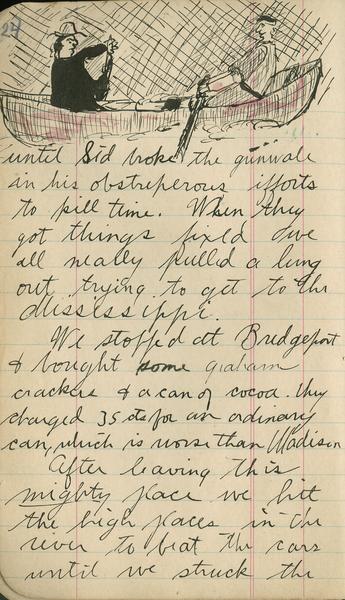 24
until Sid broke the gunwale
in his obstreperous efforts
to kill time. When they
got things fixed we
all nearly pulled a lung
out trying to get to the
Mississippi.
We stopped at Bridgeport
& bought some graham
crackers & a can of cocoa. They
charged 35 cts for an ordinary
can, which is worse than Madison
After leaving this
mighty place we hit
the high places in the
river to beat the cars
until we struck the